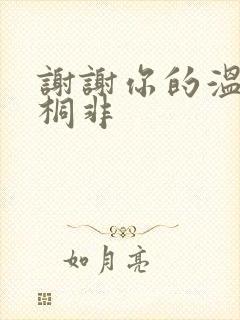 謝謝你的溫
桐非
如月亮